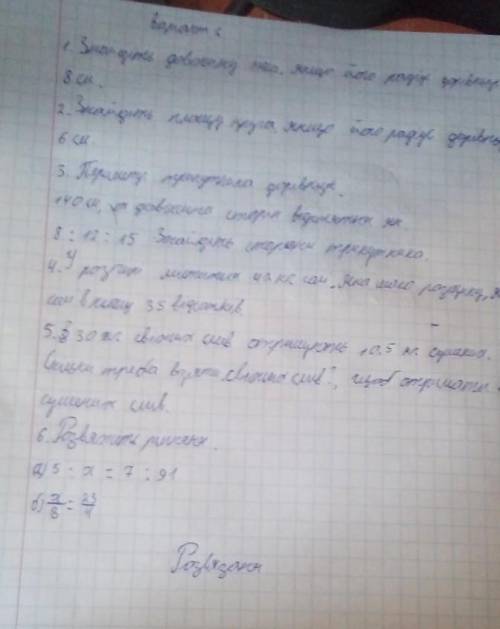 Варіант
1. Знайдіть довжину кола, якщо його радіус дорівнює
8 см.
2. Знайдіть площу круга, якщо його радіус дорівнює
6 см.
3. Периметр трикутника дорівнює
140 см, а довжини сторін відносяться як
8 : 12 : 15 Знайдіть сторони трикутника.
4. У розчині міститься кг солі. маса розчину,
солі в ньому 35 відсотків.
5. З 30 кг свіжих слив отримують 10,5 кг сушених.
Скільки треба взяти свіжих слив, щоб отримати
сушених слив.
6. Розвяжіть рівняння.
а) 5 : х = 7 : 91
б) х/8 =
Розвязання